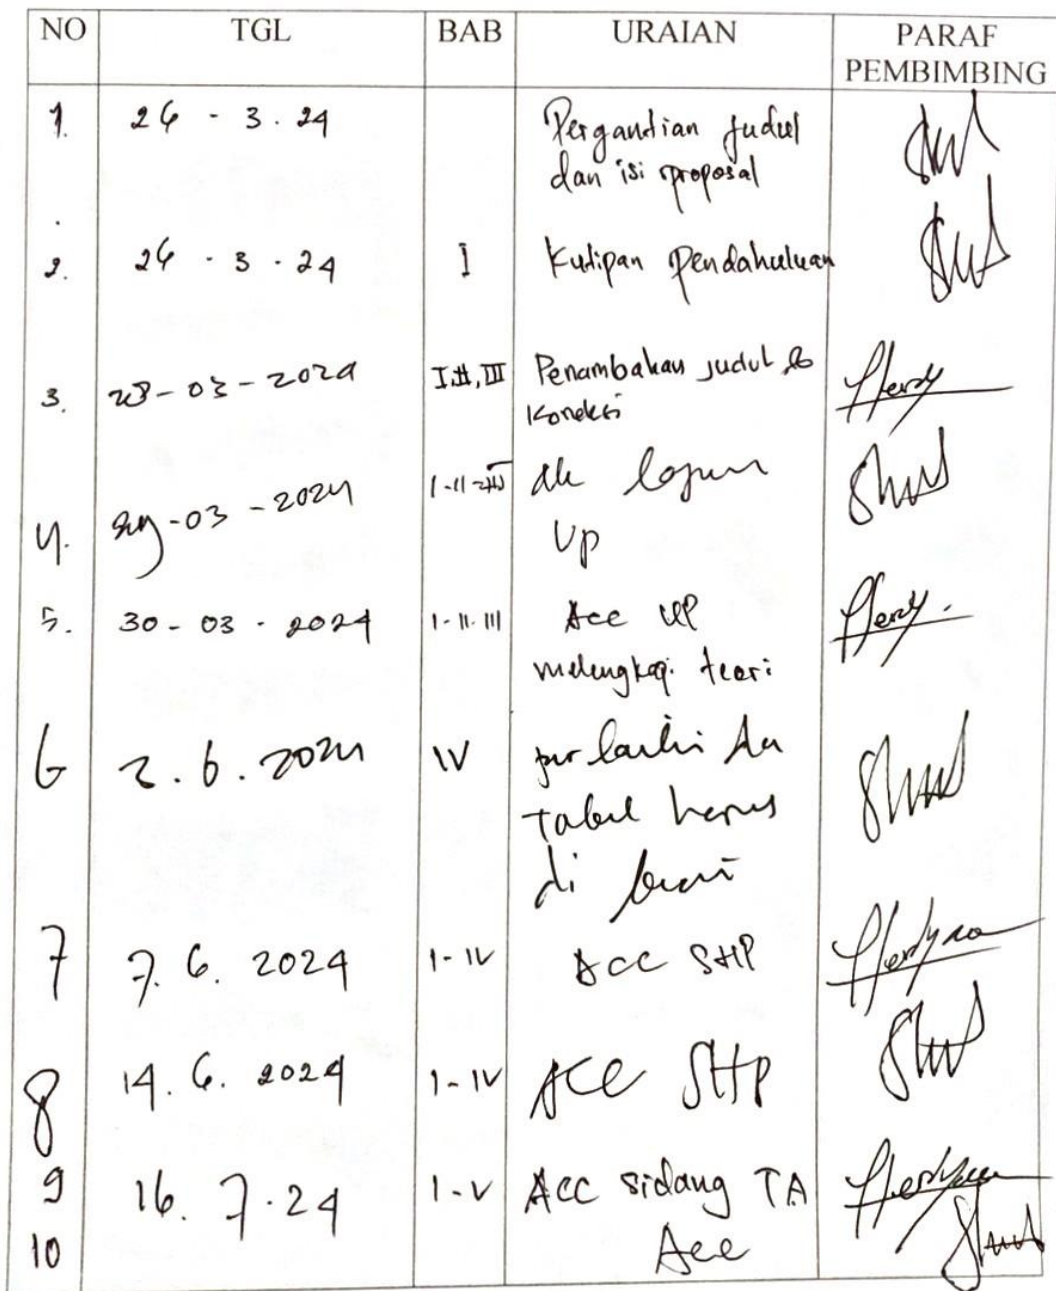 NO TGL BAB URAIAN PARAF
PEMBIMBING
1. 26 - 3 . 24 Pergantian judul
dan isi proposal
2. 26 . 3 . 24 I Kutipan Pendahuluan
3. 28 - 03 - 2024 I,II,III Penambahan judul &
Koreksi
4. 29 -03 -2024 I-II-III
UP
5. 30 - 03 . 2024 I-II.III Acc UP
melengkapi teori
6 2 . 6 . 2024 IV
Tabel harus
di
7 7. 6. 2024 I-IV Acc SHP
8 14. 6. 2024 I-IV Acc SHP
9 16. 7.24 I-V Acc sidang TA
10 Acc